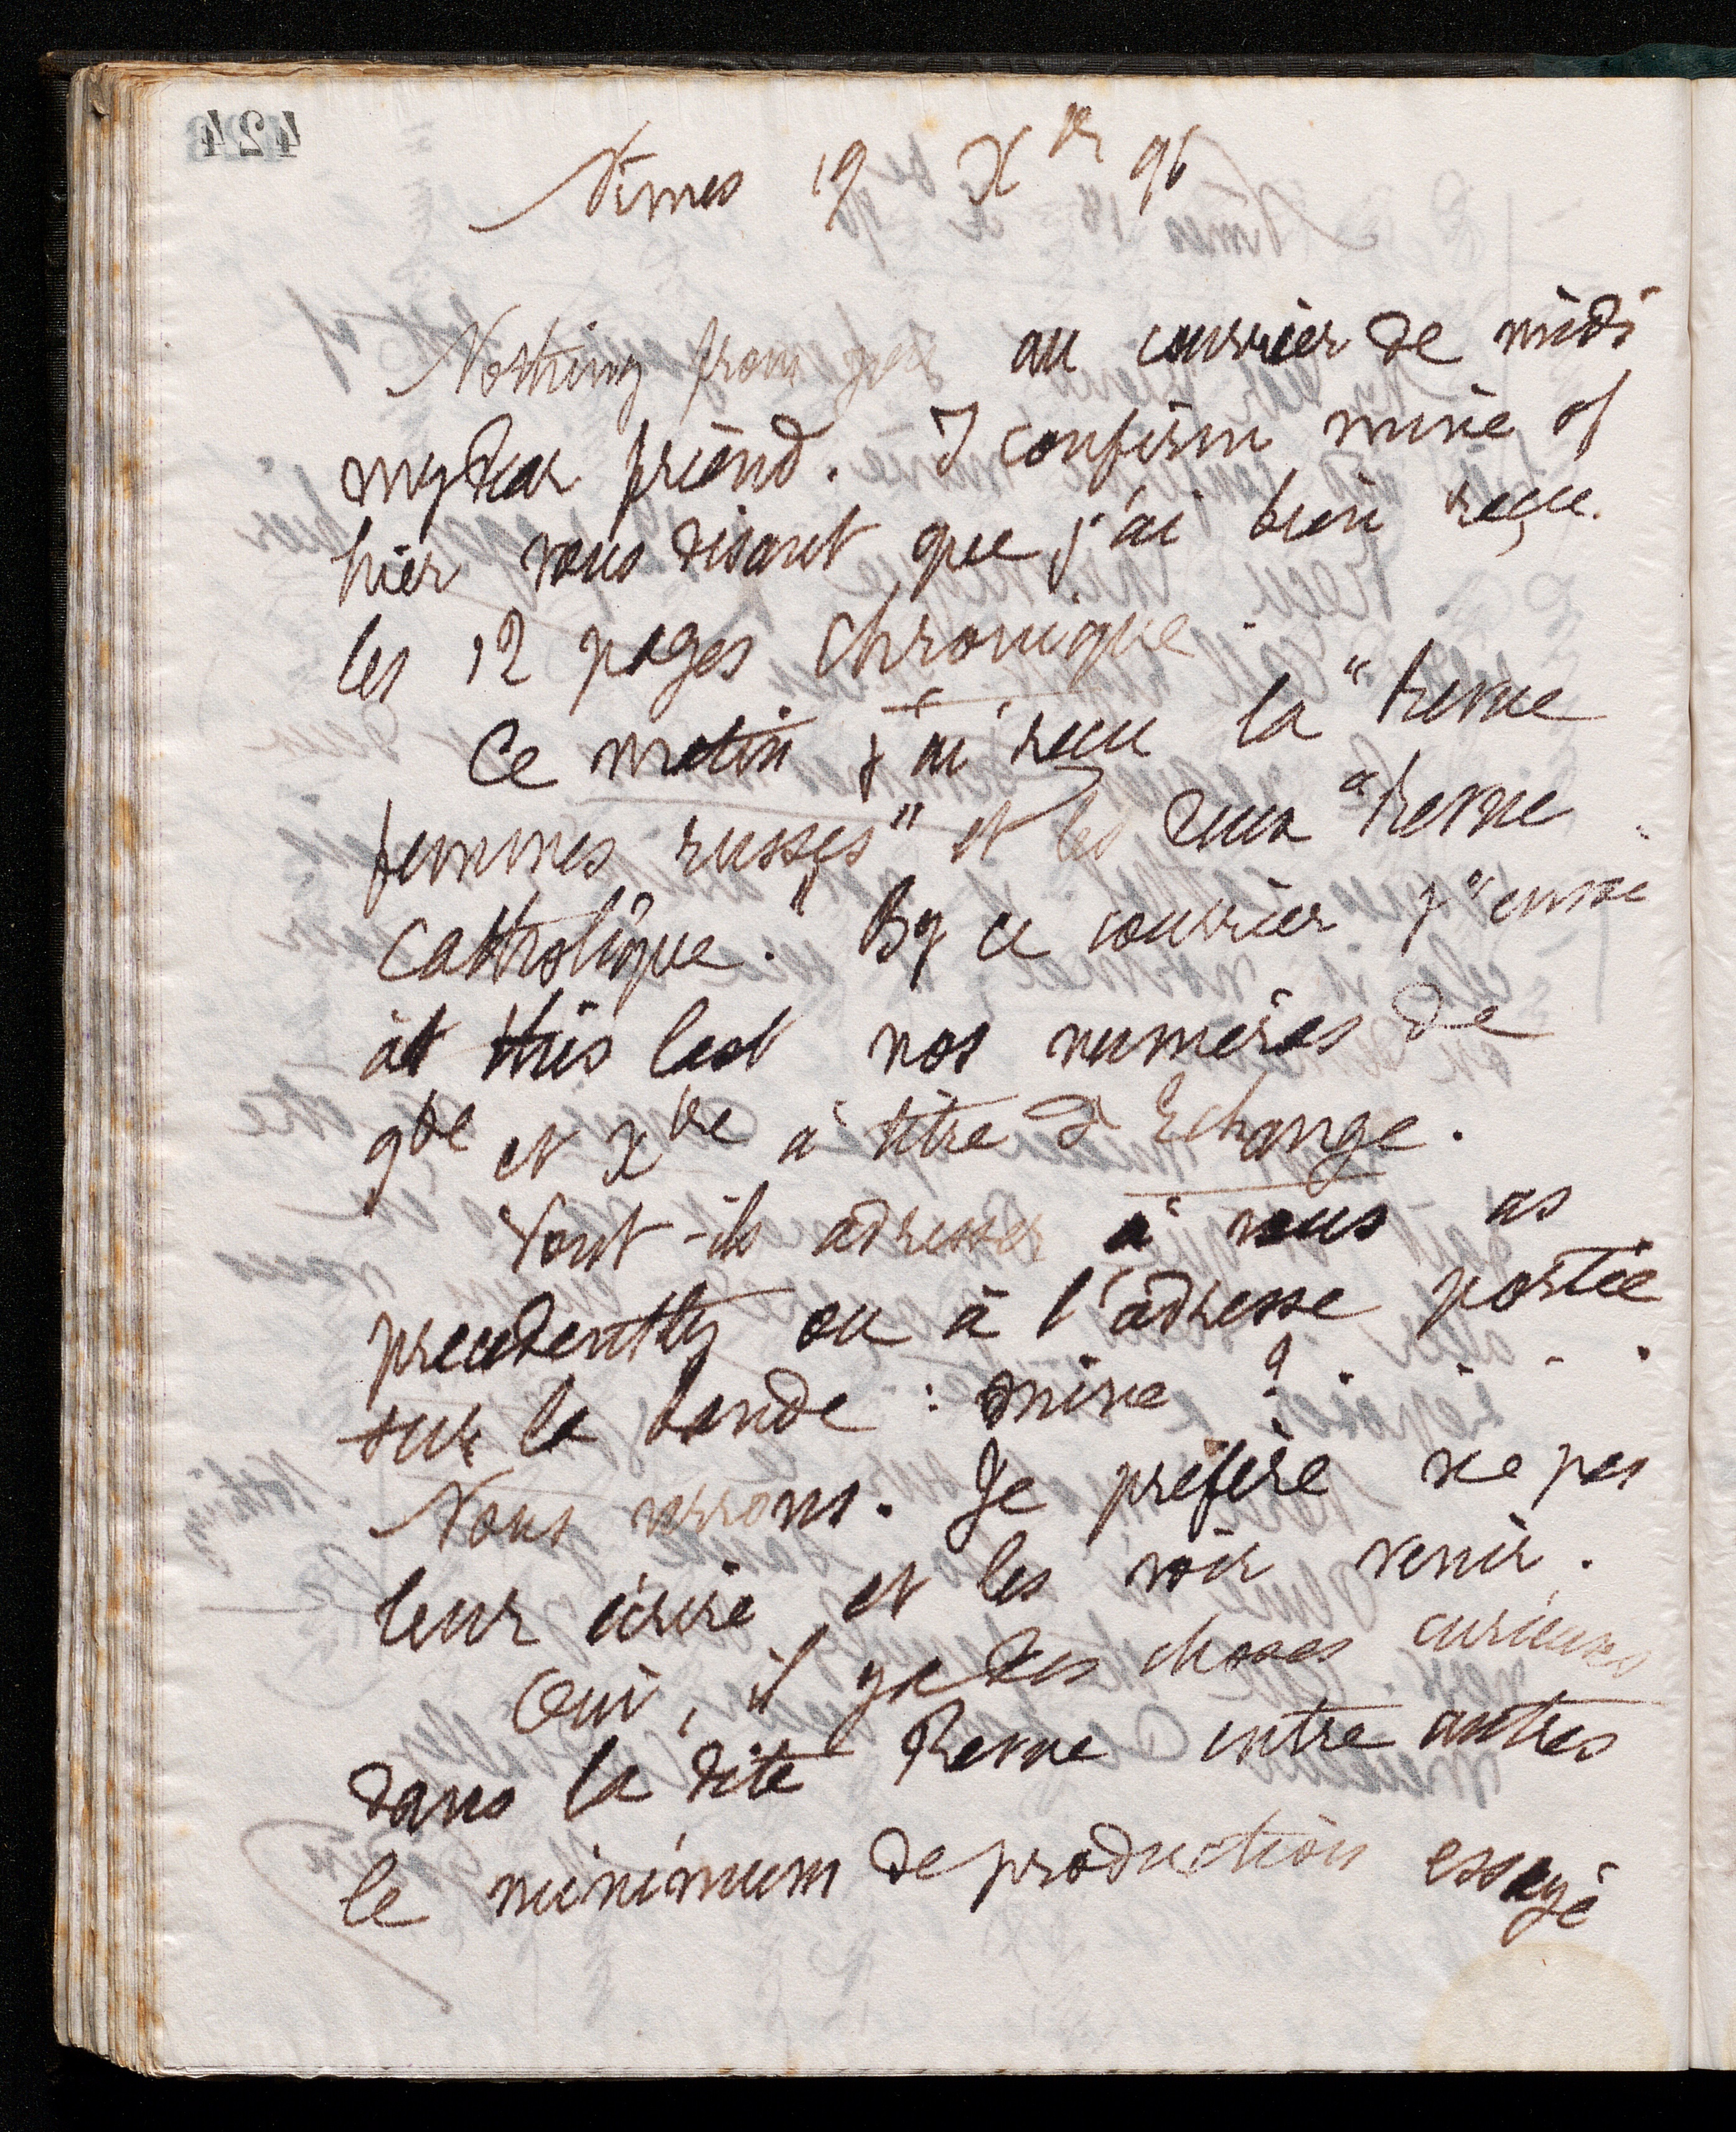 424
Nîmes 19 Xbre 96
Nothing from you au courrier de midi
my dear friend. I confirm mine of
hier vous disant que j'ai bien reçu
les 12 pages Chronique.
Ce matin j'ai reçu la "Revue
femmes russes" et les deux "Revue
Catholique." By ce courrier j'envoie
at this last nos numéros de
9bre et xbre à titre d'Echange.
Vont-ils adresser à vous as
precedently ou à l'adresse portée
sur la bande : mine ? . . . .
Nous verrons. Je préfère ne pas
leur écrire et les voir venir.
Oui, il y a des choses curieuses
dans la dite Revue entre autres
le minimum de production essayé